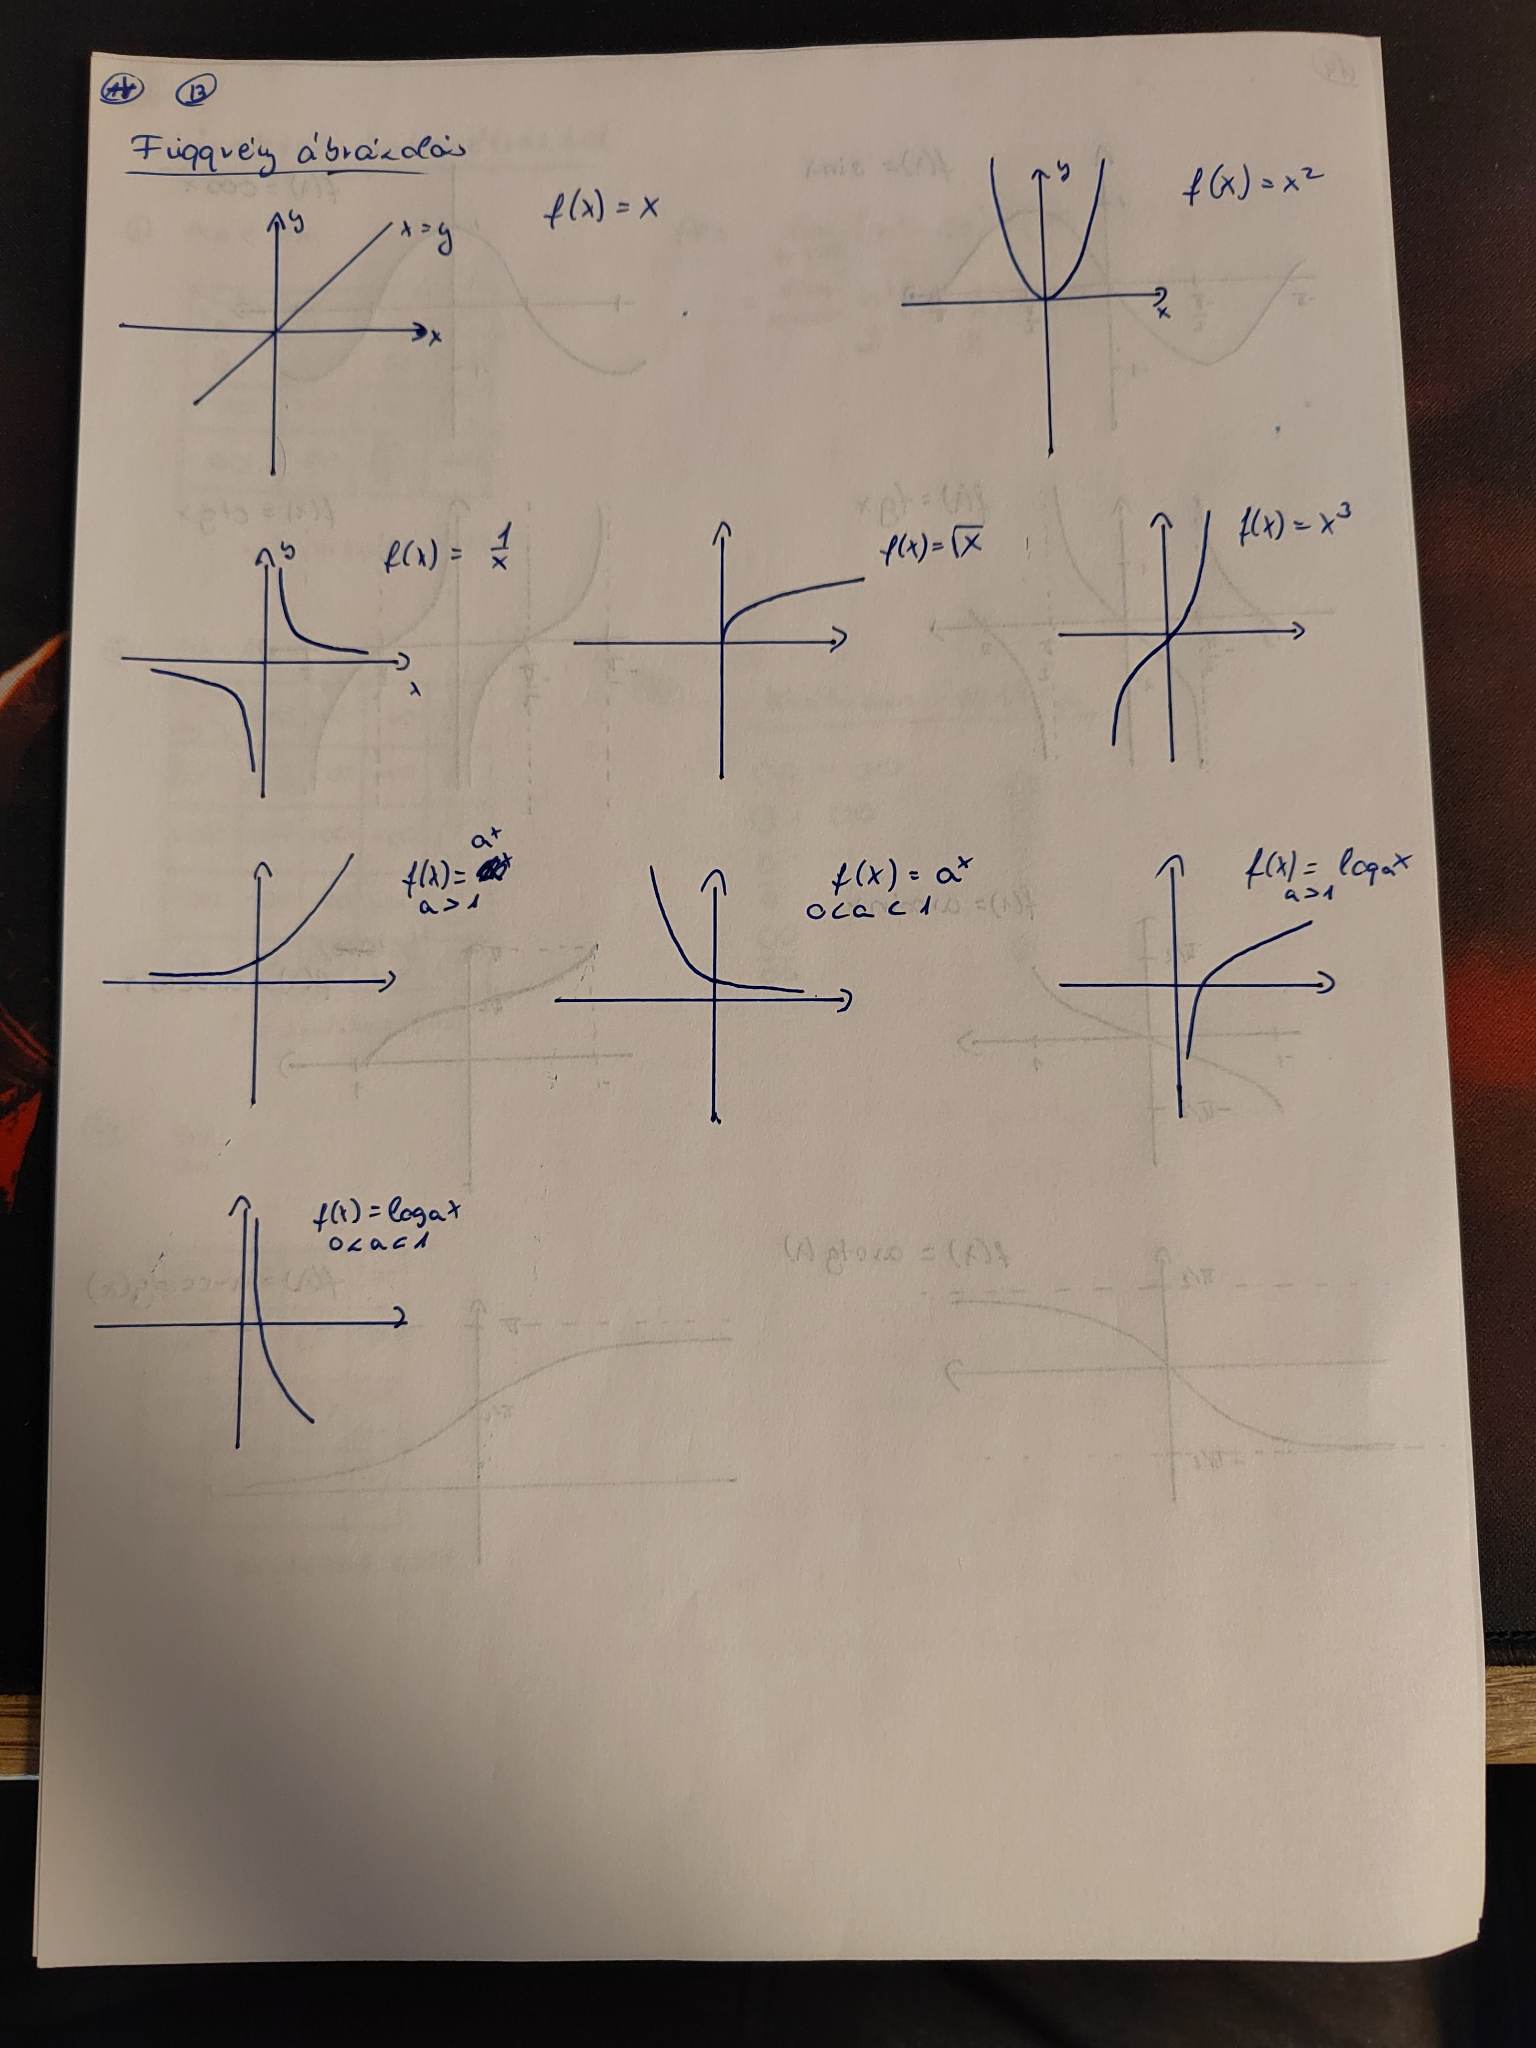 13
Függvény ábrázolás
f(x) = x
y
x = y
x
f(x) = x²
y
x
f(x) = 1/x
y
x
f(x) = √x
f(x) = x³
aˣ
f(x) =
a > 1
f(x) = aˣ
0 < a < 1
f(x) = logₐx
a > 1
f(x) = logₐx
0 < a < 1